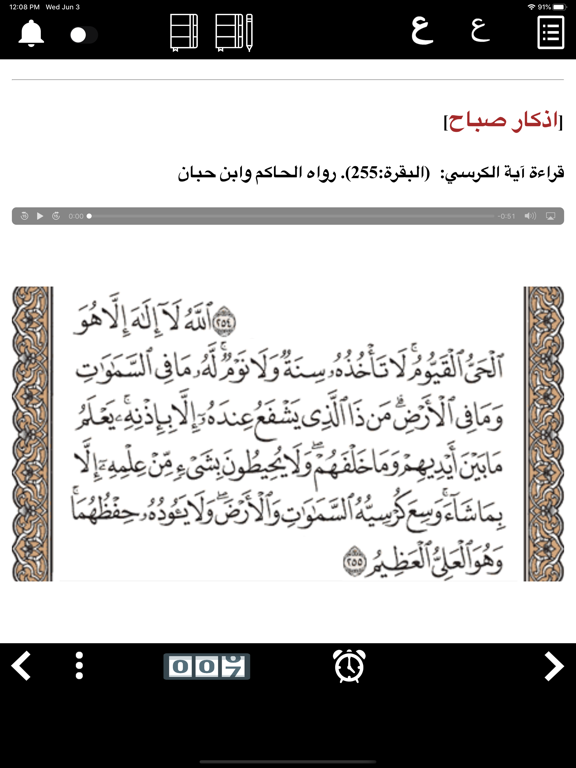 12:08 PM Wed Jun 3 91%
ع ع
[اذكار صباح]
قراءة آية الكرسي: (البقرة:255). رواه الحاكم وابن حبان
0:00 -0:51
٢٥٤ ٱللَّهُ لَآ إِلَٰهَ إِلَّا هُوَ
ٱلْحَىُّ ٱلْقَيُّومُ ۚ لَا تَأْخُذُهُۥ سِنَةٌ وَلَا نَوْمٌ ۚ لَّهُۥ مَا فِى ٱلسَّمَٰوَٰتِ
وَمَا فِى ٱلْأَرْضِ ۗ مَن ذَا ٱلَّذِى يَشْفَعُ عِندَهُۥٓ إِلَّا بِإِذْنِهِۦ ۚ يَعْلَمُ
مَا بَيْنَ أَيْدِيهِمْ وَمَا خَلْفَهُمْ ۖ وَلَا يُحِيطُونَ بِشَىْءٍ مِّنْ عِلْمِهِۦٓ إِلَّا
بِمَا شَآءَ ۚ وَسِعَ كُرْسِيُّهُ ٱلسَّمَٰوَٰتِ وَٱلْأَرْضَ ۖ وَلَا يَـُٔودُهُۥ حِفْظُهُمَا ۚ
وَهُوَ ٱلْعَلِىُّ ٱلْعَظِيمُ ٢٥٥
007